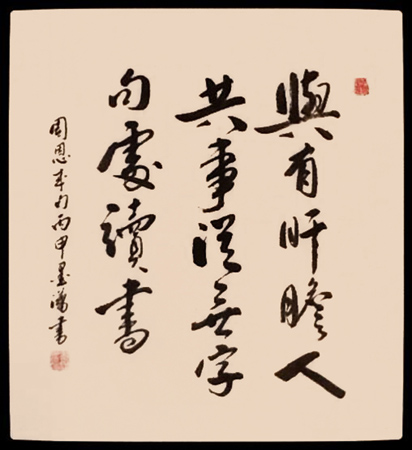 與有肝膽人
共事從無字
句處讀書
周恩来句丙申墨書